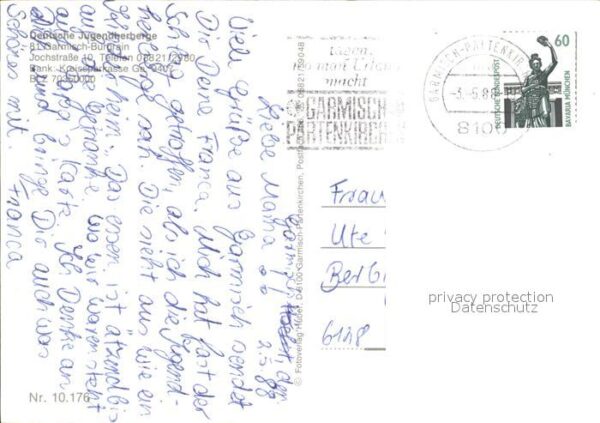 Deutsche Jugendherberge
81 Garmisch-Burgrain
Jochstraße 10, Telefon 08821/2980
Bank: Kreissparkasse Ga.
BLZ 703 500 00
Nr. 10.176
© Fotoverlag Huber, D-8100 Garmisch-Partenkirchen, Postfach
Garmisch, den
2.5.88
Liebe Mama!
Viele Grüße aus Garmisch sendet
Dir Deine Franca. Mich hat fast der
Schlag getroffen, als ich die Jugend-
herberg sah. Die sieht aus wie ein
Das essen ist ätzend bis
auf die Getränke. Wo wir waren steht
auf der Karte. Ich Denke an
Dich und bringe Dir auch was
schönes mit. Franca
tagen.
wo man Urlaub
macht
GARMISCH
PARTENKIRCHEN
GARMISCH-PARTENKIR
-3.-5.88
8100
60
DEUTSCHE BUNDESPOST
BAVARIA MÜNCHEN
Frau
Ute
6148
privacy protection
Datenschutz